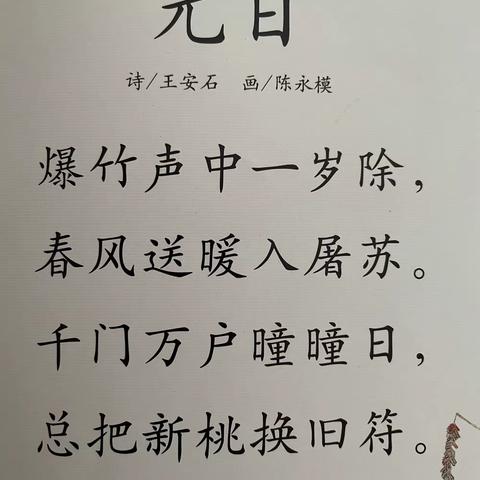 元日
诗/王安石 画/陈永模
爆竹声中一岁除，
春风送暖入屠苏。
千门万户曈曈日，
总把新桃换旧符。